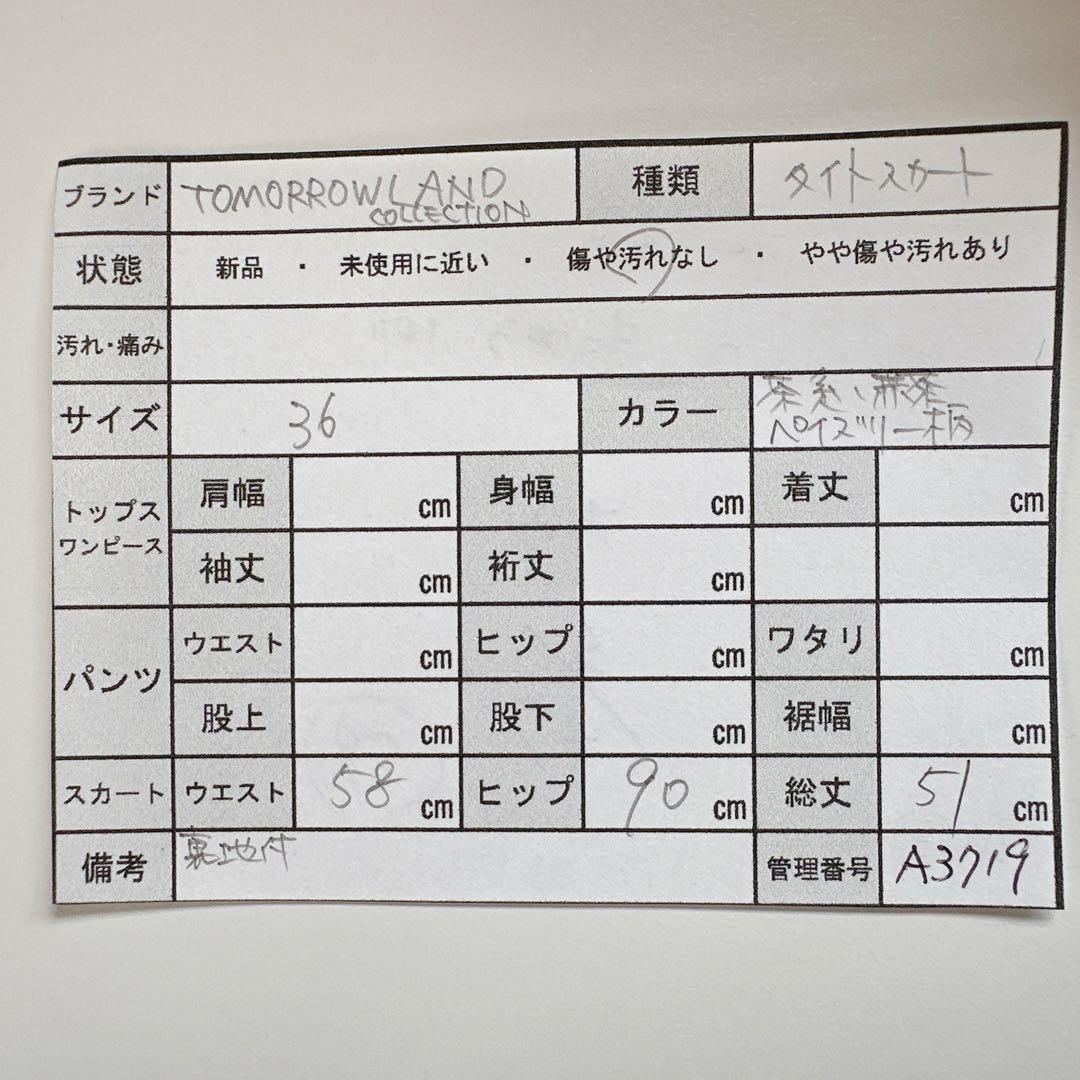 ブランド TOMORROWLAND COLLECTION 種類 タイトスカート
状態 新品 ・ 未使用に近い ・ 傷や汚れなし ・ やや傷や汚れあり
汚れ・痛み
サイズ 36 カラー 茶系、
ペイズリー柄
トップス
ワンピース
肩幅 cm 身幅 cm 着丈 cm
袖丈 cm 裄丈 cm
パンツ
ウエスト cm ヒップ cm ワタリ cm
股上 cm 股下 cm 裾幅 cm
スカート ウエスト 58 cm ヒップ 90 cm 総丈 51 cm
備考 裏地付 管理番号 A3719